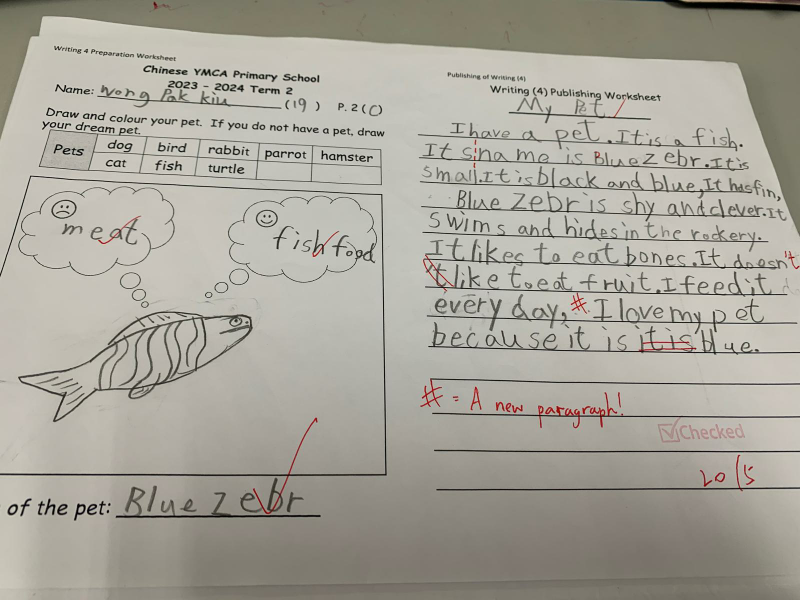 Writing 4 Preparation Worksheet
Chinese YMCA Primary School
2023 - 2024 Term 2
Name: Wong Pak Kiu (19) P. 2 (C)
Draw and colour your pet. If you do not have a pet, draw
your dream pet.
Pets dog bird rabbit parrot hamster
cat fish turtle
meat
fish food
of the pet: Blue zebr
Publishing of Writing (4)
Writing (4) Publishing Worksheet
My Pet
I have a pet. It is a fish.
It s name is Blue zebr. It is
small. It is black and blue, It has fin,
Blue zebr is shy and clever. It
swims and hides in the rockery.
It likes to eat bones. It doesn't
't like to eat fruit. I feed it
every day, # I love my pet
because it is it is blue.
# = A new paragraph!
Checked
20/5